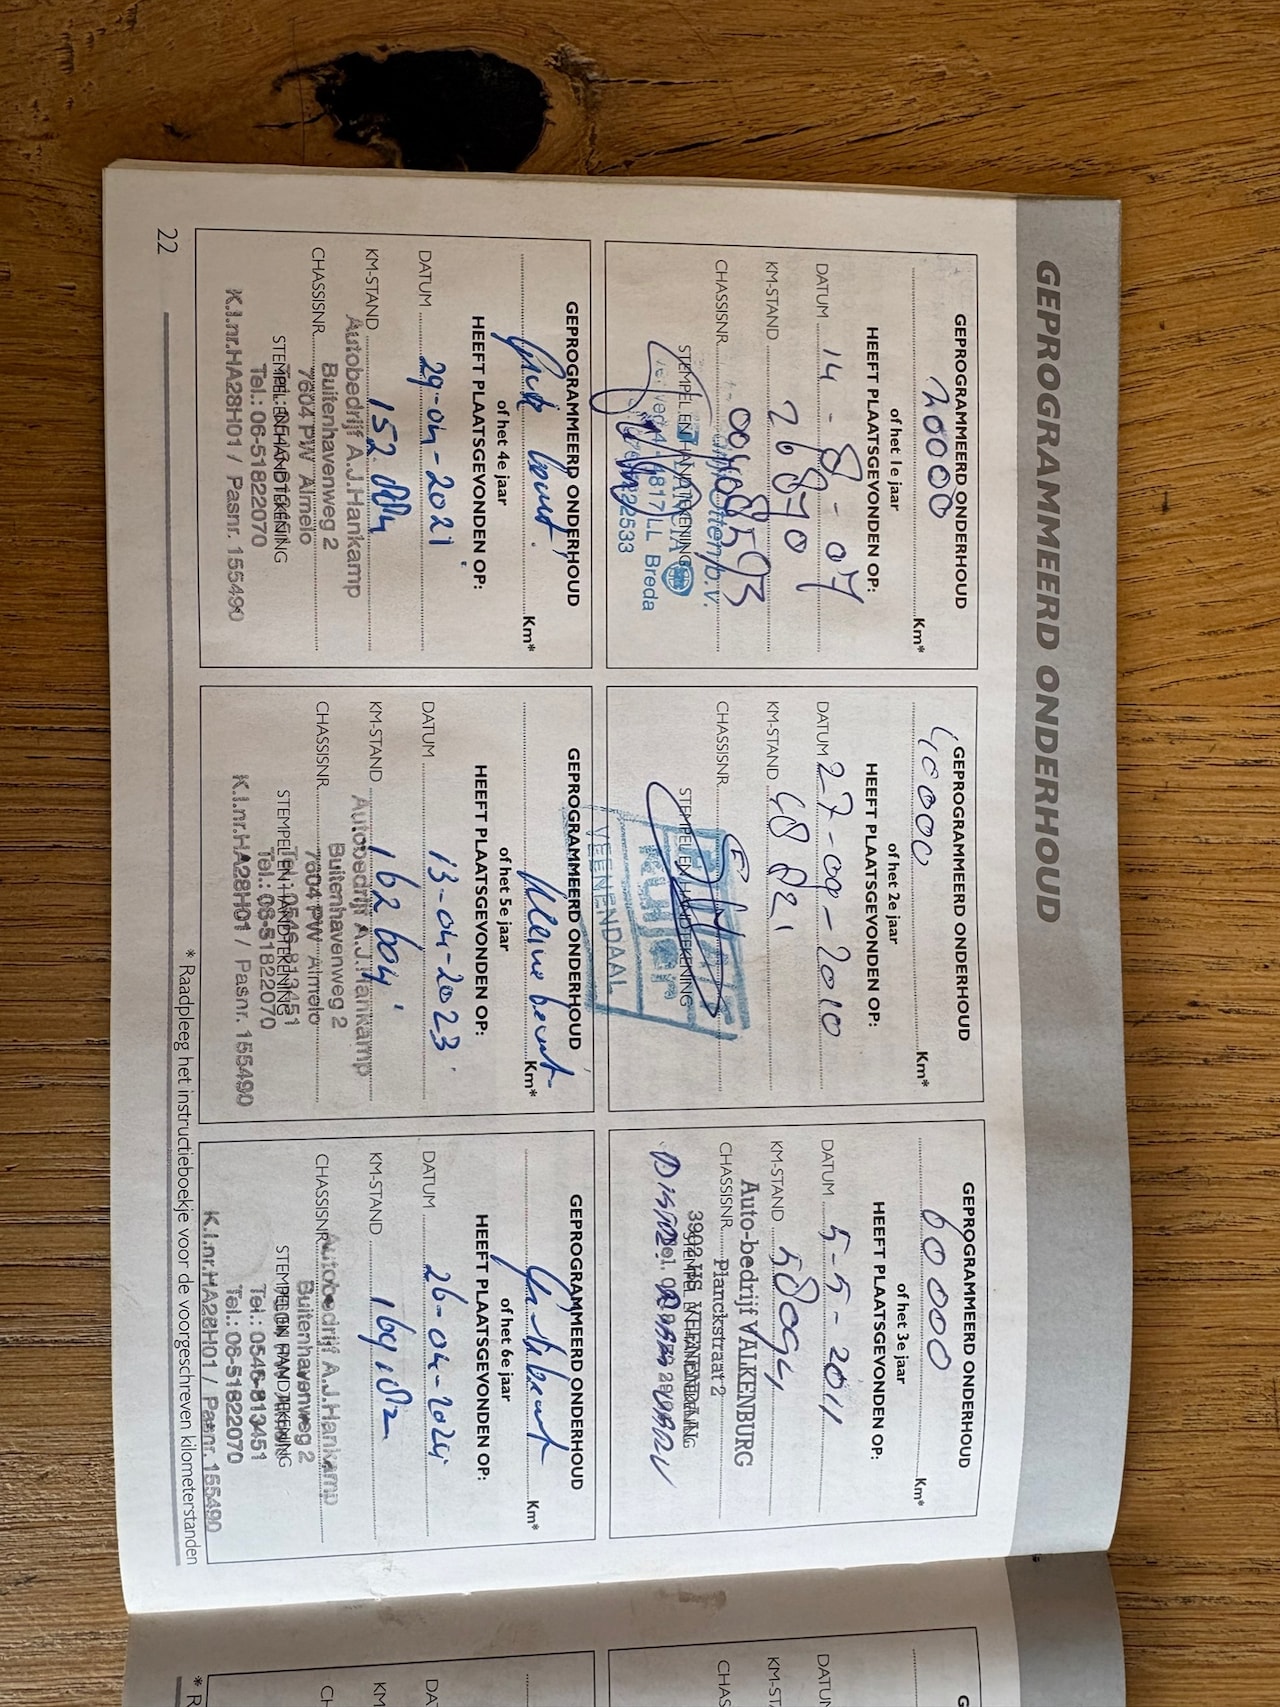 GEPROGRAMMEERD ONDERHOUD
GEPROGRAMMEERD ONDERHOUD
20000 Km*
of het 1e jaar
HEEFT PLAATSGEVONDEN OP:
DATUM 14-8-07
KM-STAND 26870
CHASSISNR. 00408593
STEMPEL EN HANDTEKENING
4817 LL Breda
GEPROGRAMMEERD ONDERHOUD
40000 Km*
of het 2e jaar
HEEFT PLAATSGEVONDEN OP:
DATUM 27-09-2010
KM-STAND 48821
CHASSISNR.
STEMPEL EN HANDTEKENING
VEENENDAAL
GEPROGRAMMEERD ONDERHOUD
60000 Km*
of het 3e jaar
HEEFT PLAATSGEVONDEN OP:
DATUM 5-5-2011
KM-STAND 58094
Auto-bedrijf VALKENBURG
CHASSISNR. Planckstraat 2
3902 HS VEENENDAAL
STEMPEL EN HANDTEKENING
GEPROGRAMMEERD ONDERHOUD
beurt. Km*
of het 4e jaar
HEEFT PLAATSGEVONDEN OP:
DATUM 29-04-2021
KM-STAND 152
Autobedrijf A.J.Hankamp
Buitenhavenweg 2
CHASSISNR. 7604 PW Almelo
STEMPEL EN HANDTEKENING
Tel.: 06-51822070
K.I.nr.HA28H01 / Pasnr. 155490
GEPROGRAMMEERD ONDERHOUD
Kleine beurt Km*
of het 5e jaar
HEEFT PLAATSGEVONDEN OP:
DATUM 13-04-2023
KM-STAND 162604
Autobedrijf A.J.Hankamp
Buitenhavenweg 2
CHASSISNR. 7604 PW Almelo
STEMPEL EN HANDTEKENING
Tel.: 0546-813451
Tel.: 06-51822070
K.I.nr.HA28H01 / Pasnr. 155490
GEPROGRAMMEERD ONDERHOUD
beurt Km*
of het 6e jaar
HEEFT PLAATSGEVONDEN OP:
DATUM 26-04-2024
KM-STAND
CHASSISNR. Autobedrijf A.J.Hankamp
Buitenhavenweg 2
STEMPEL EN HANDTEKENING
Tel.: 0546-813451
Tel.: 06-51822070
K.I.nr.HA28H01 / Pasnr. 155490
* Raadpleeg het instructieboekje voor de voorgeschreven kilometerstanden
22